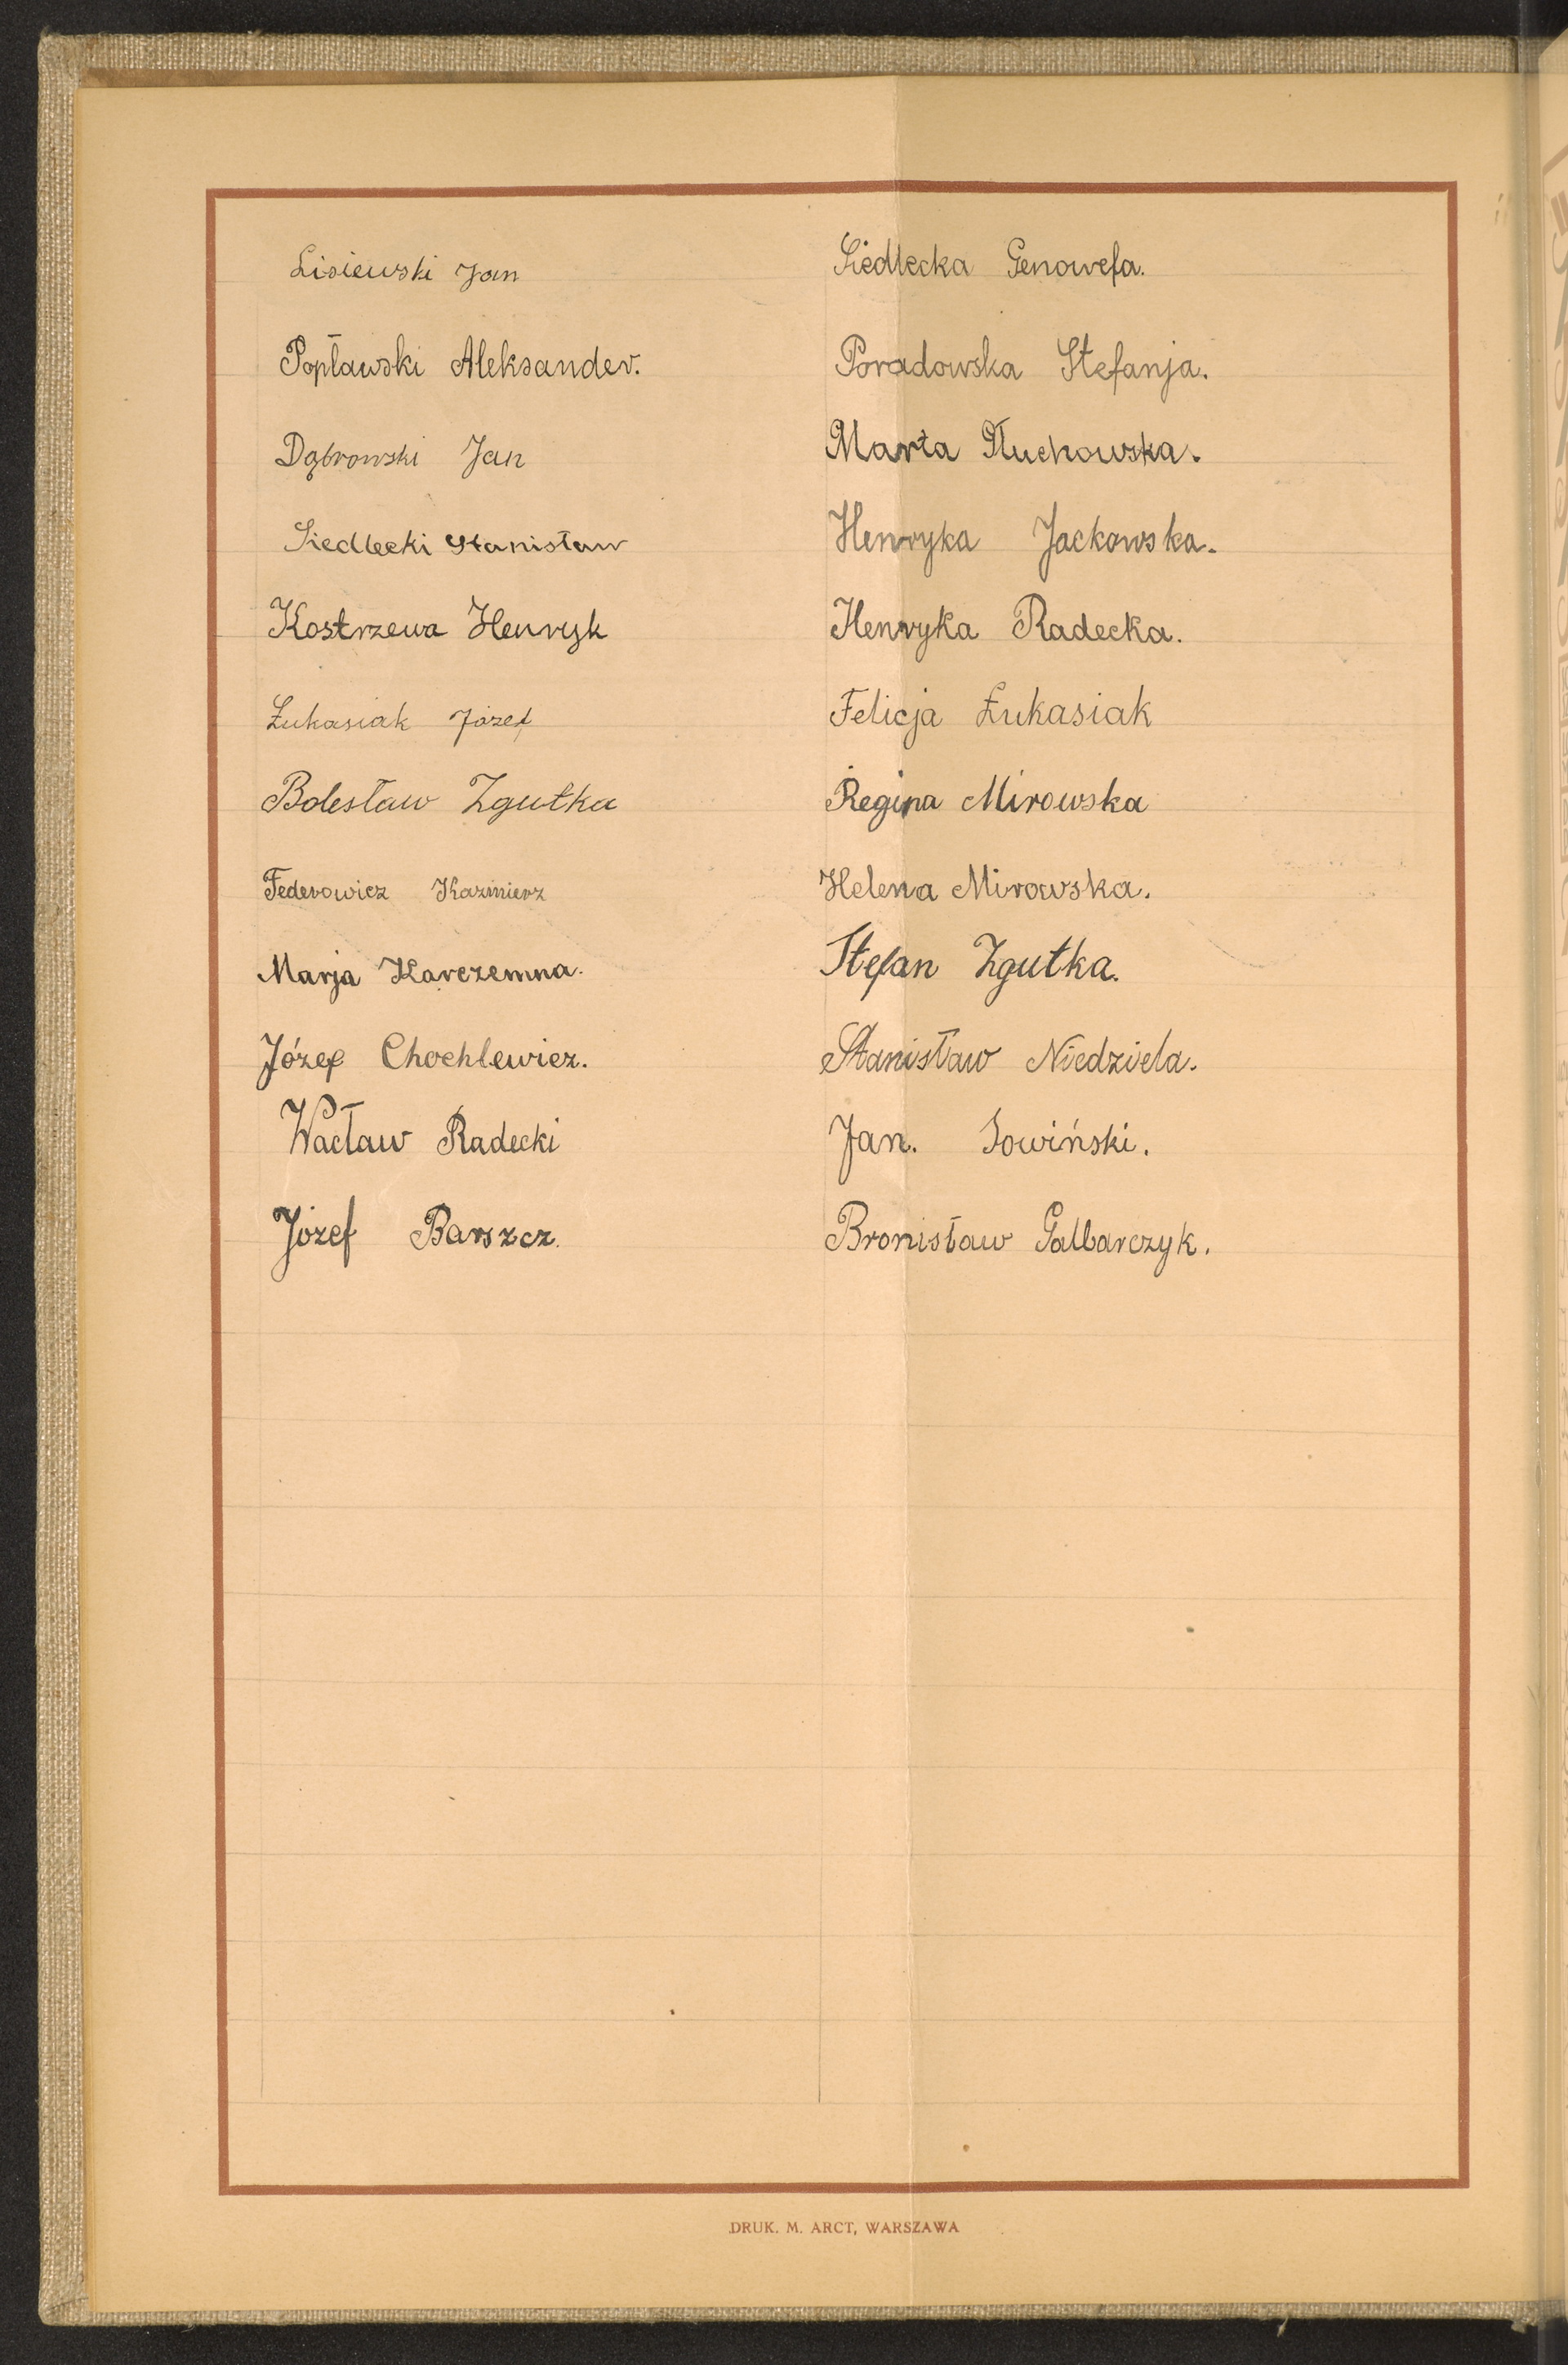 Lisiewski Jan
Popławski Aleksander.
Dąbrowski Jan
Siedlecki Stanisław
Kostrzewa Henryk
Łukasiak Józef
Bolesław Zgutka
Federowicz Kazimierz
Marja Karczemna.
Józef Chochlewicz.
Wacław Radecki
Józef Barszcz.
Siedlecka Genowefa.
Poradowska Stefanja.
Marta Tłuchowska.
Henryka Jackowska.
Henryka Radecka.
Felicja Łukasiak
Regina Mirowska
Helena Mirowska.
Stefan Zgutka.
Stanisław Niedziela.
Jan. Sowiński.
Bronisław Galbarczyk.
DRUK. M. ARCT, WARSZAWA